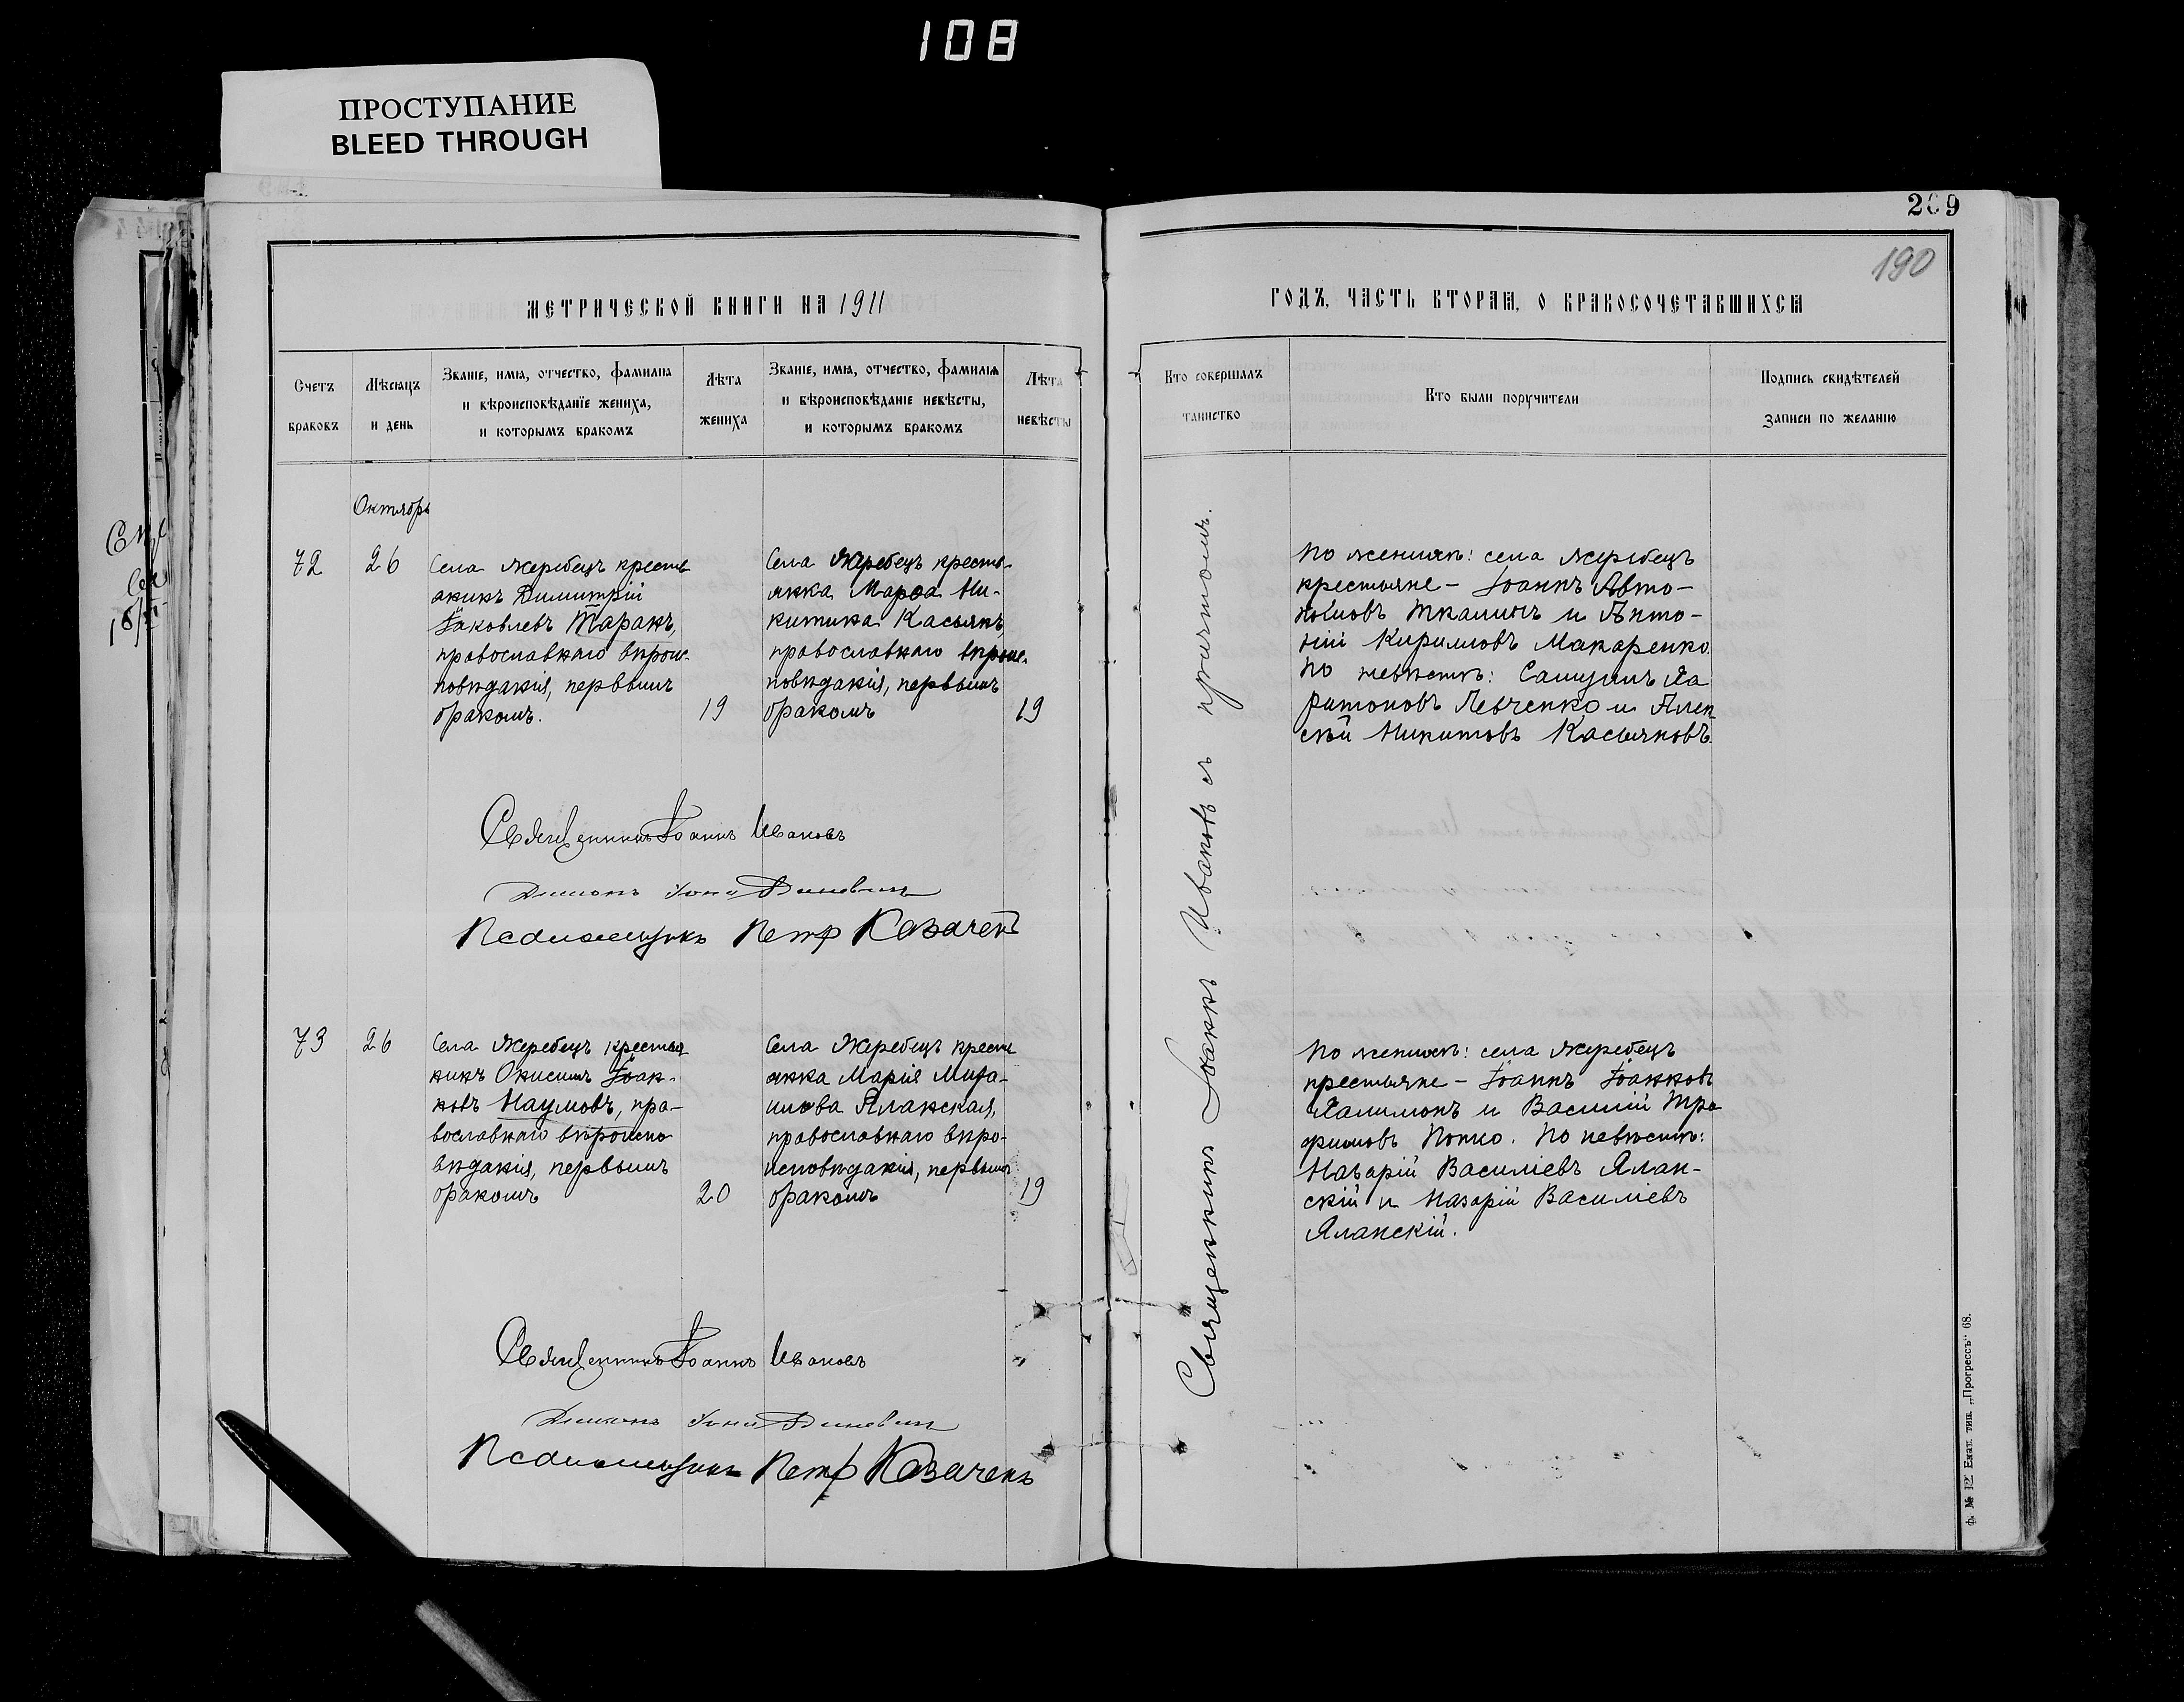 108
ПРОСТУПАНИЕ
BLEED THROUGH
209
190
МЕТРИЧЕСКОЙ КНИГИ НА 1911
ГОДЪ, ЧАСТЬ ВТОРАЯ, О БРАКОСОЧЕТАВШИХСЯ
Счетъ браковъ
Мѣсяцъ и день
Званіе, имя, отчество, фамилія и вѣроисповѣданіе жениха, и которымъ бракомъ
Лѣта жениха
Званіе, имя, отчество, фамилія и вѣроисповѣданіе невѣсты, и которымъ бракомъ
Лѣта невѣсты
Кто совершалъ таинство
Кто были поручители
Подпись свидѣтелей записи по желанію
Октябрь
72
26
Села Жеребецъ кресть
янинъ Димитрій
Іаковлевъ Таранъ,
православнаго вѣроис-
повѣданія, первымъ
бракомъ.
19
Села Жеребецъ кресть-
янка Марѳа Ни-
китина Касьянъ,
православнаго вѣроис-
повѣданія, первымъ
бракомъ
19
По женихѣ: села Жеребецъ
крестьяне - Іоаннъ Авто-
номовъ Ткаличъ и Анто-
ній Кирилловъ Макаренко.
По невѣстѣ: Самуилъ Ха
ритоновъ Левченко и Алек
сѣй Никитовъ Касьяновъ.
Священникъ Іоаннъ Ивановъ
Діаконъ
Псаломщикъ Петр Казачекъ
73
26
Села Жеребецъ крестья
нинъ Онисимъ Іоан-
новъ Наумовъ, пра-
вославнаго вѣроиспо
вѣданія, первымъ
бракомъ
20
Села Жеребецъ кресть
янка Марія Миха-
илова Яланская,
православнаго вѣро-
исповѣданія, первымъ
бракомъ
19
По женихѣ: села Жеребецъ
крестьяне - Іоаннъ Іоанновъ
Халимонъ и Василій Тро
фимовъ Попко. По невѣстѣ:
Назарій Василіевъ Ялан-
скій и Назарій Василіевъ
Яланскій.
Священникъ Іоаннъ Ивановъ
Діаконъ
Псаломщикъ Петр Казачекъ
Священникъ Іоаннъ Ивановъ съ причтомъ.
Ф. № 12 Екат. тип. „Прогрессъ" 68.